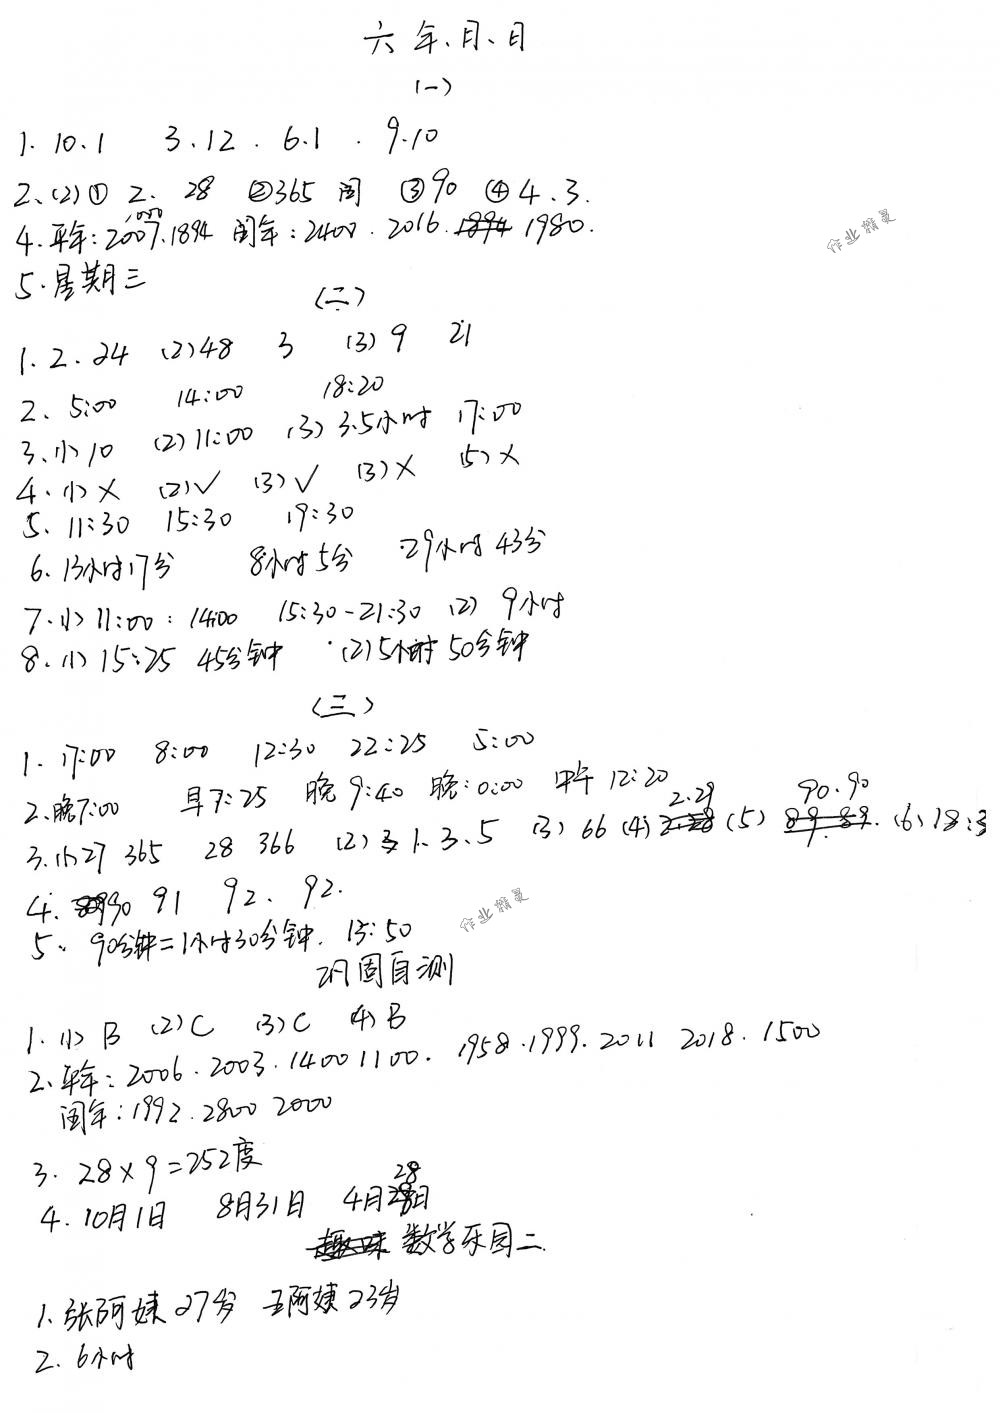 六 年、月、日
(一)
1. 10.1 3.12 . 6.1 . 9.10
2、(2)① 2. 28 ②365 闰 ③90 ④4.3.
4.平年:2007.1000.1894 闰年:2400.2016.1894 1980.
作业精灵
5.星期三
(二)
1.2.24 (2)48 3 (3)9 21
2、5:00 14:00 18:20
3、(1)10 (2)11:00 (3)3.5小时 17:00
4.(1)× (2)√ (3)√ (3)× (5)×
5、11:30 15:30 19:30
6.13小时17分 8小时5分 29小时43分
7.(1)11:00:14:00 15:30-21:30 (2) 9小时
8.(1)15:25 45分钟 (2)5小时50分钟
(三)
1.17:00 8:00 12:30 22:25 5:00
2.晚7:00 早7:25 晚9:40 晚:0:00 中午12:20
3.(1)27 365 28 366 (2)1.3.5 (3)66 (4)2.29 (5)90.90 (6)18:3
4.90 91 92、92.
作业精灵
5、90分钟=1小时30分钟. 13:50
巩固自测
1.(1)B (2)C (3)C (4)B
2、平年:2006.2003.1400 1100. 1958.1999.2011 2018.1500
闰年:1992.2800 2000
3.28×9=252度
4.10月1日 8月31日 4月28日
趣味 数学乐园二
1.张阿姨27岁 王阿姨23岁
2.6小时